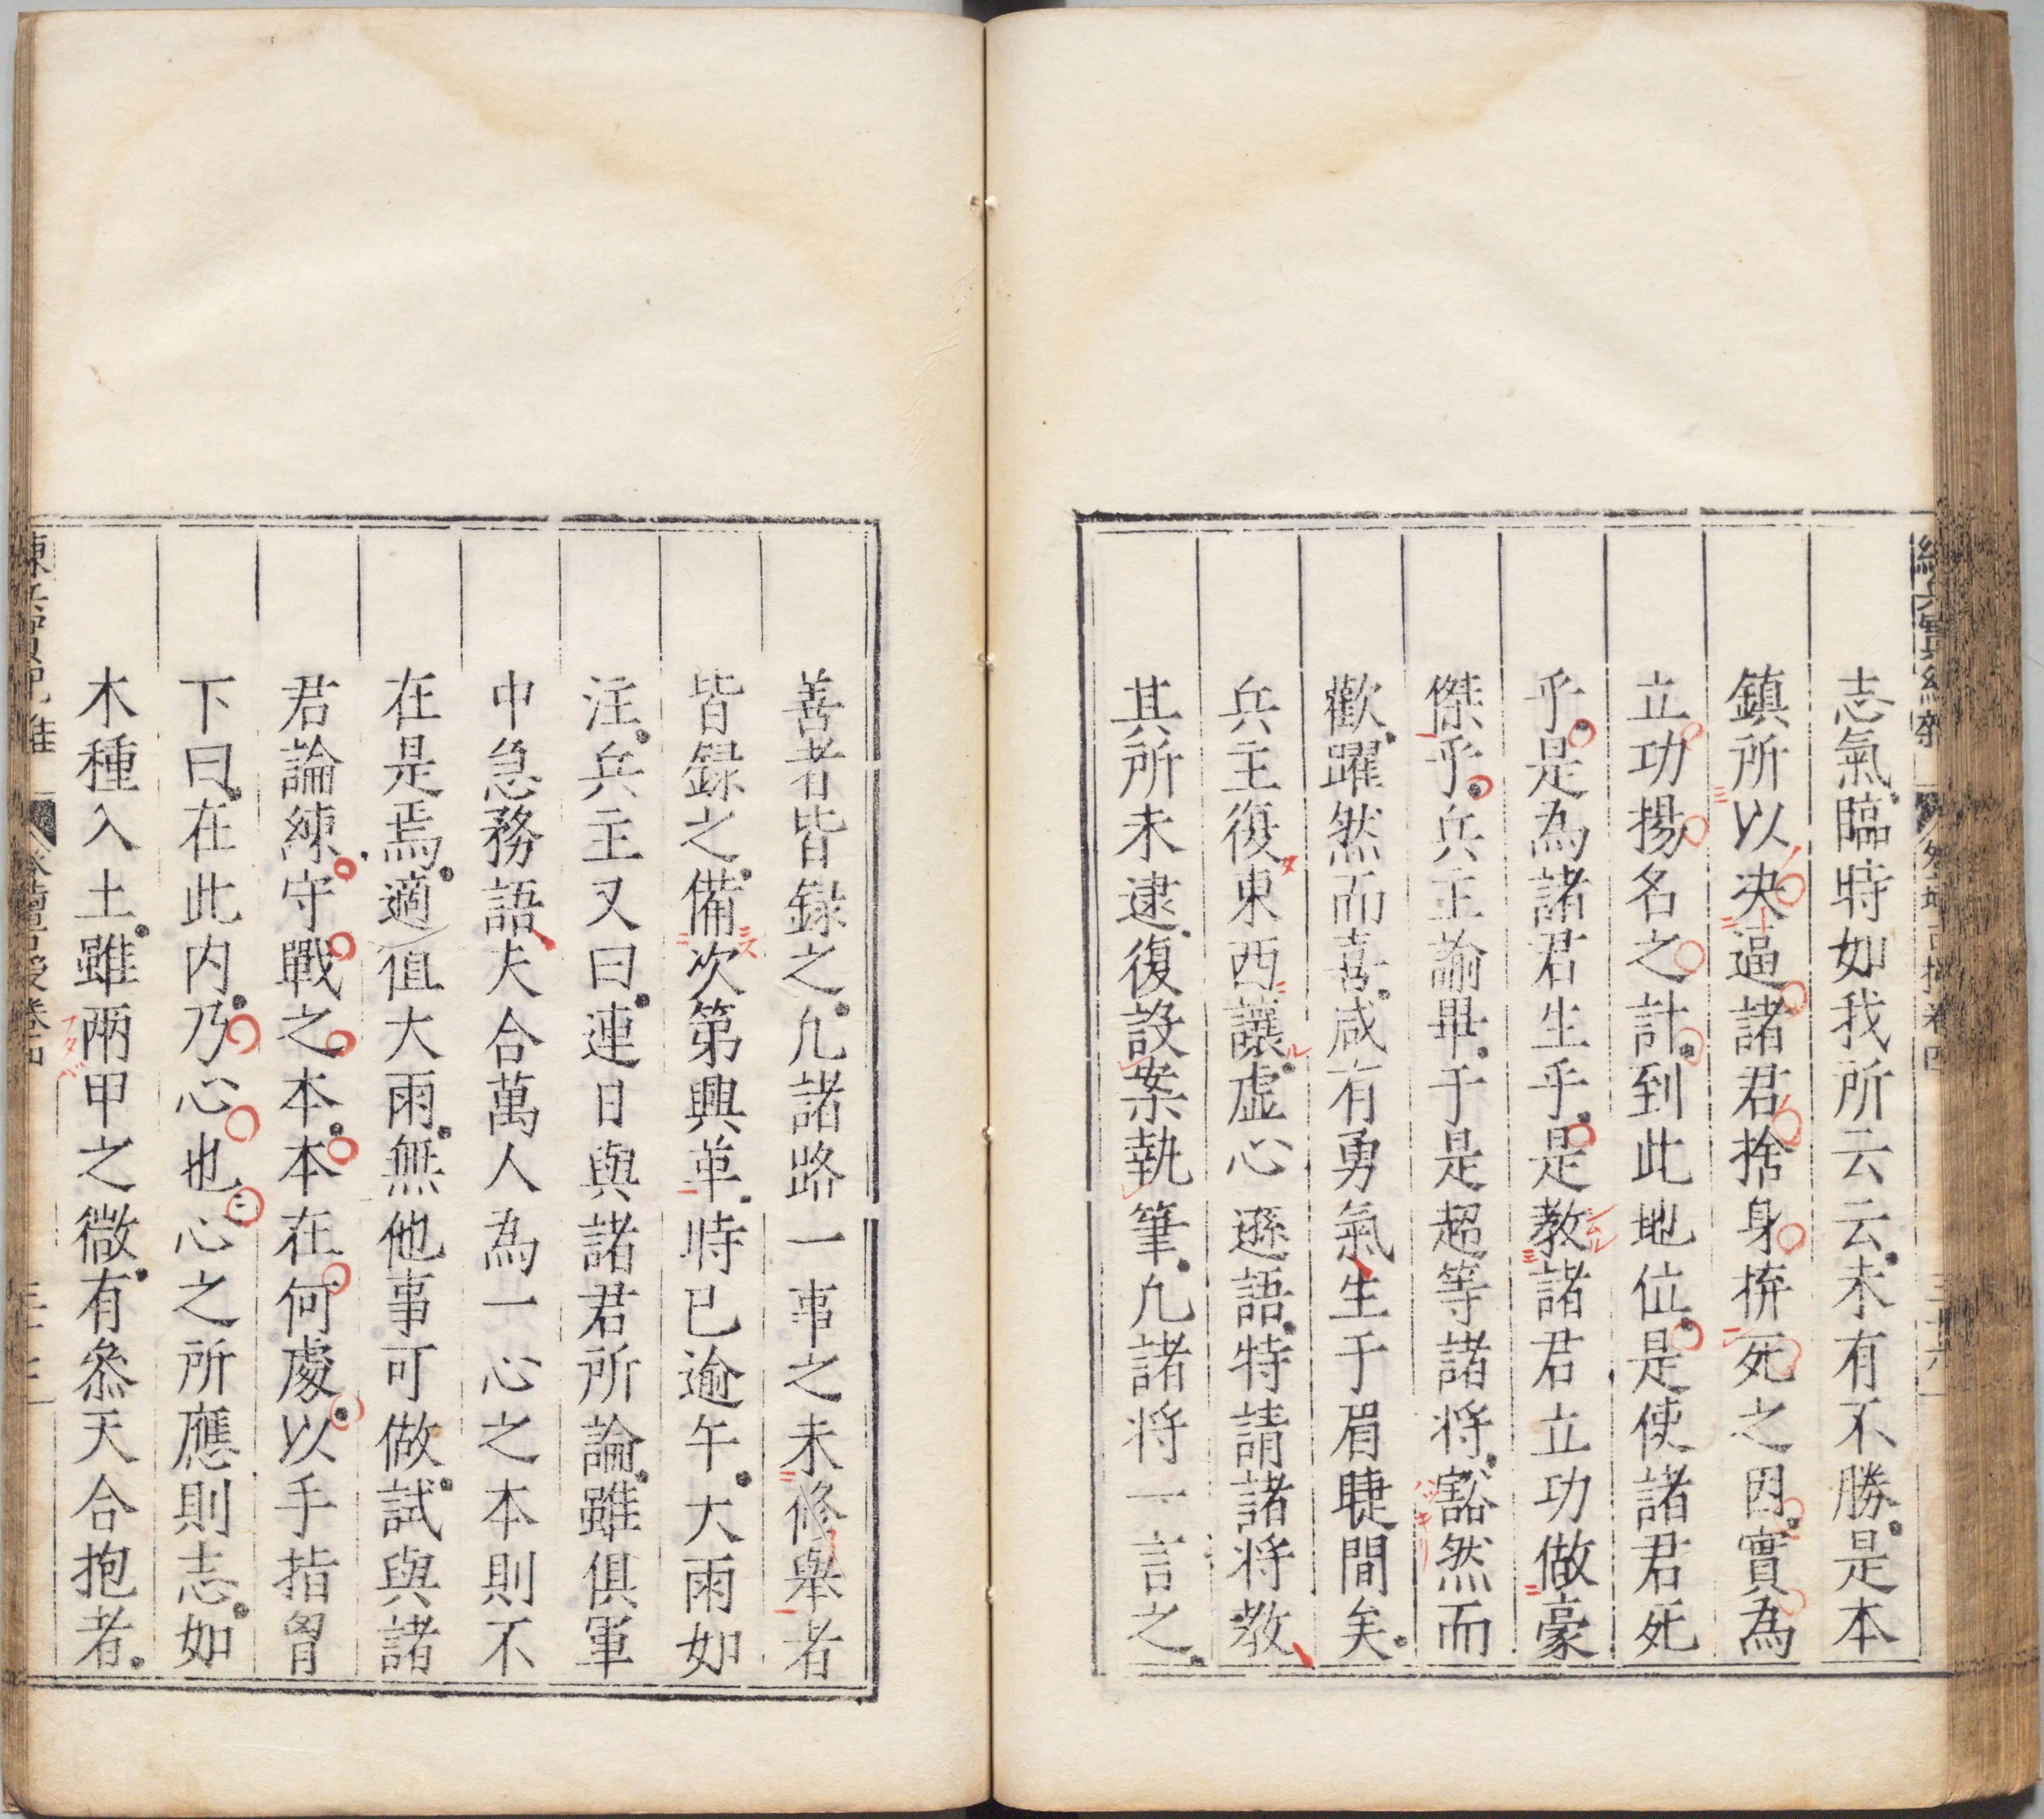 志氣臨時如我所云云未有不勝是本
鎮所以决逼諸君捨身拚死之因實為
立功揚名之計到此地位是使諸君死
乎是為諸君生乎是教諸君立功做豪
傑乎兵主諭畢于是超等諸将豁然而
歡躍然而喜咸有勇氣生于眉睫間矣
兵主復東西讓虚心遜語特請諸将教
其所未逮復設案執筆凢諸将一言之
善者皆録之凢諸路一事之未修舉者
皆録之備次第興革時已逾午大雨如
注兵主又曰連日與諸君所論雖俱軍
中急務語夫合萬人為一心之本則不
在是焉適值大雨無他事可做試與諸
君論練守戰之本本在何處以手指胷
下曰在此内乃心也心之所應則志如
木種入土雖兩甲之微有叅天合抱者